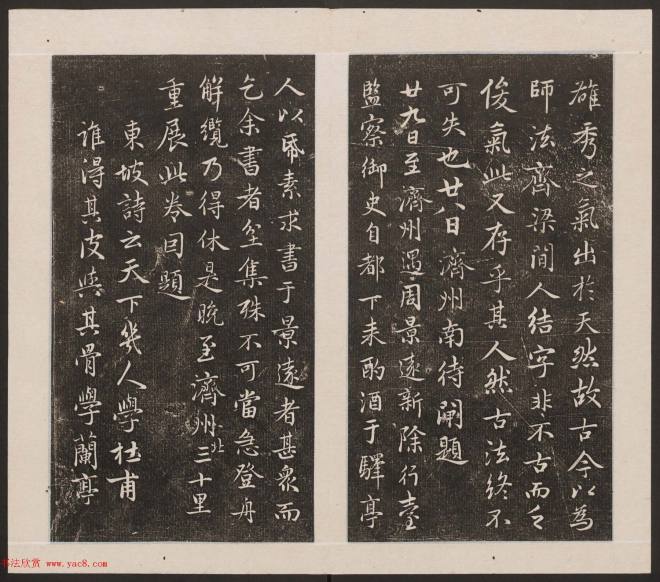 雄秀之氣出於天然故古今以為
師法齊梁間人結字非不古而乏
俊氣此又存乎其人然古法終不
可失也廿八日濟州南待閘題
廿九日至濟州遇周景遠新除行臺
監察御史自都下來酌酒于驛亭
人以紙素求書于景遠者甚衆而
乞余書者坌集殊不可當急登舟
解纜乃得休是晚至濟州北三十里
重展此卷因題
東坡詩云天下幾人學杜甫
誰得其皮與其骨學蘭亭
书法欣赏 www.yac8.com